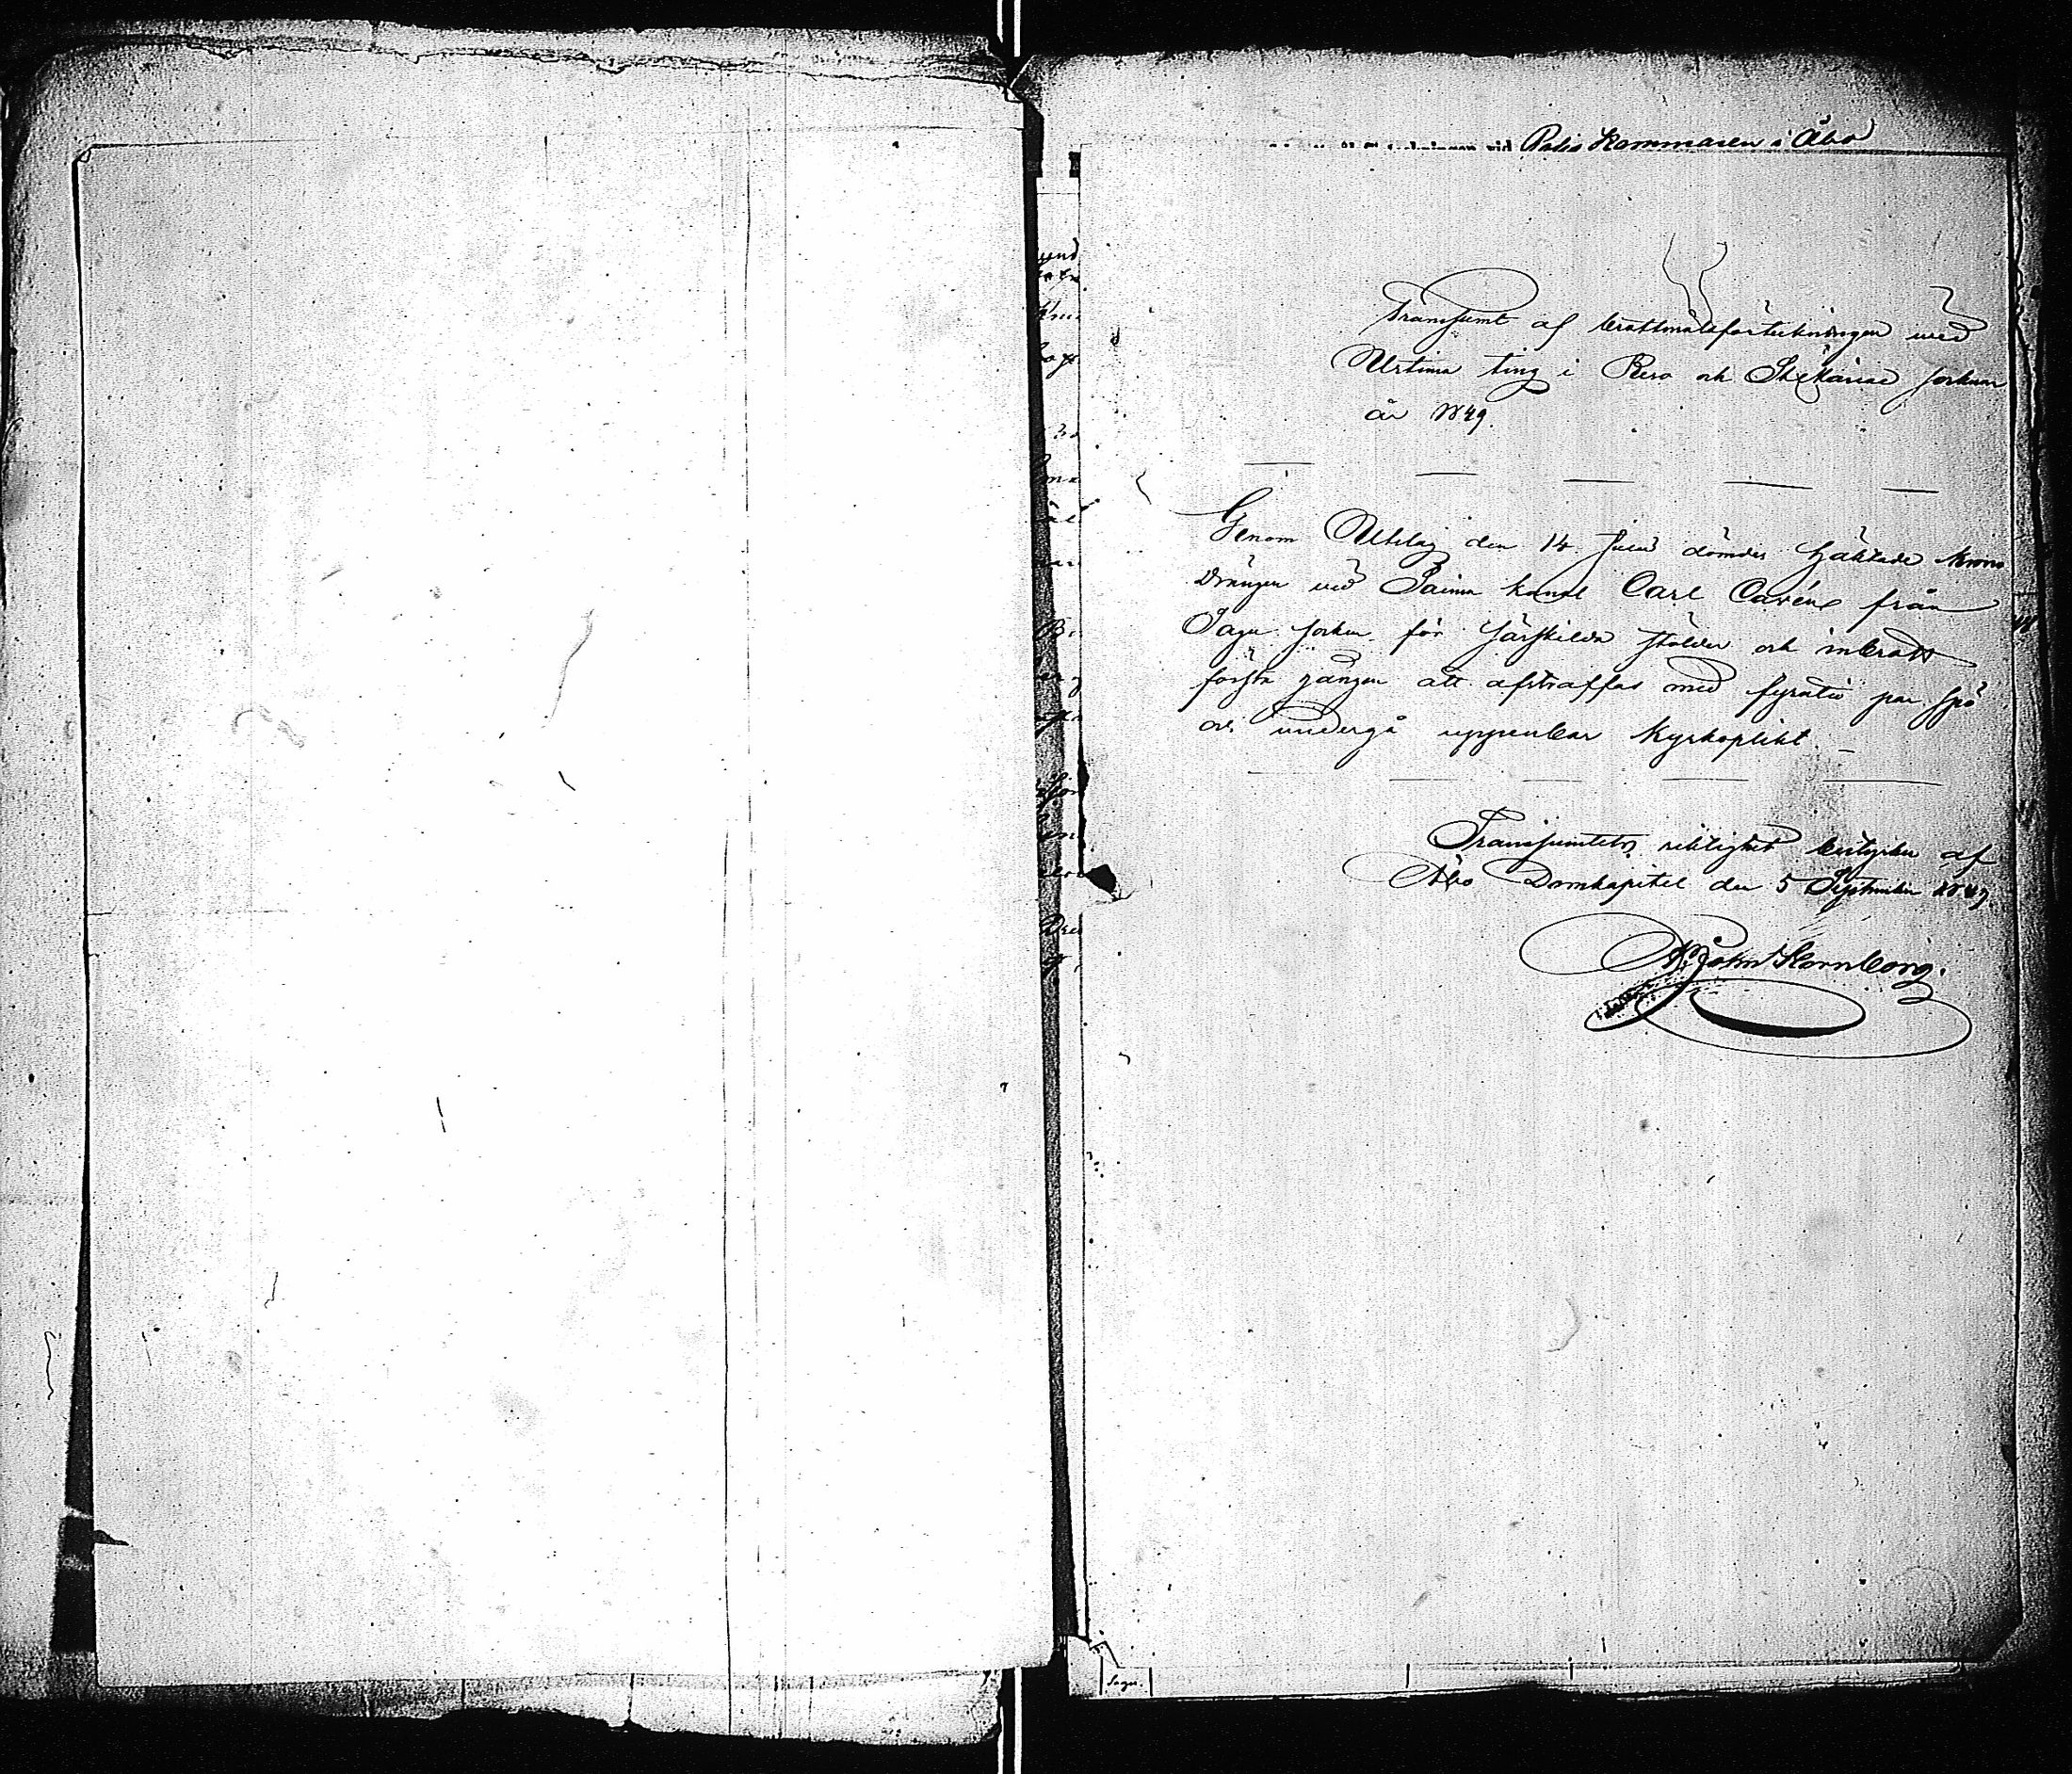 vid Polis Kammaren i Åbo
Transsumt af brottmålsförteckningen wid
Urtima ting i Reso och St Karins socknar
år 1849.
Genom Utslag den 14 Juni dömdes häktade krono
drängen wid Saima kanal Carl Cavén från
Sagu socken för särskilda stölder och inbrott
första gången att afstraffas med fyratio par spö
och undergå uppenbar kyrkoplikt.
Transsumtets riktighet bestyrkes af
Åbo Domkapitel den 5 September 1849.
Johns Hornborg.
Sagu.